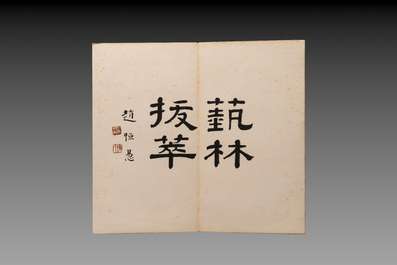 藝林
拔萃
趙恒惖